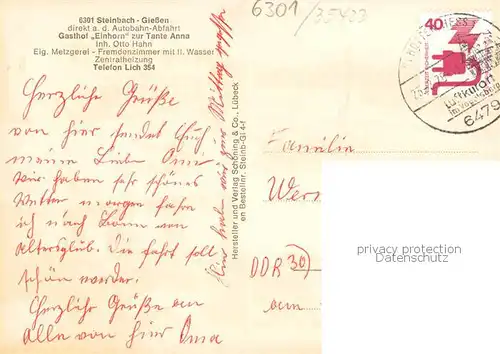 6301 Steinbach - Gießen
direkt a. d. Autobahn-Abfahrt
Gasthof „Einhorn" zur Tante Anna
Inh. Otto Hahn
Eig. Metzgerei - Fremdenzimmer mit fl. Wasser
Zentralheizung
Telefon Lich 354
Herzliche Grüße
von hier sendet Euch
meine Liebe Oma
wir haben sehr schönes
Wetter morgen fahre
ich nach Bonn von
Altersglub. Die fahrt soll
schön werden.
Herzliche Grüße an
alle von hier Oma
hier haben wir zur Mittag
Hersteller und Verlag Schöning & Co., Lübeck
en Bestellnr. Steinb-Gi 4-f
6301/35423
40
Luftkurort
647
Familie
Wer
DDR 30)
am
privacy protection
Various Cards